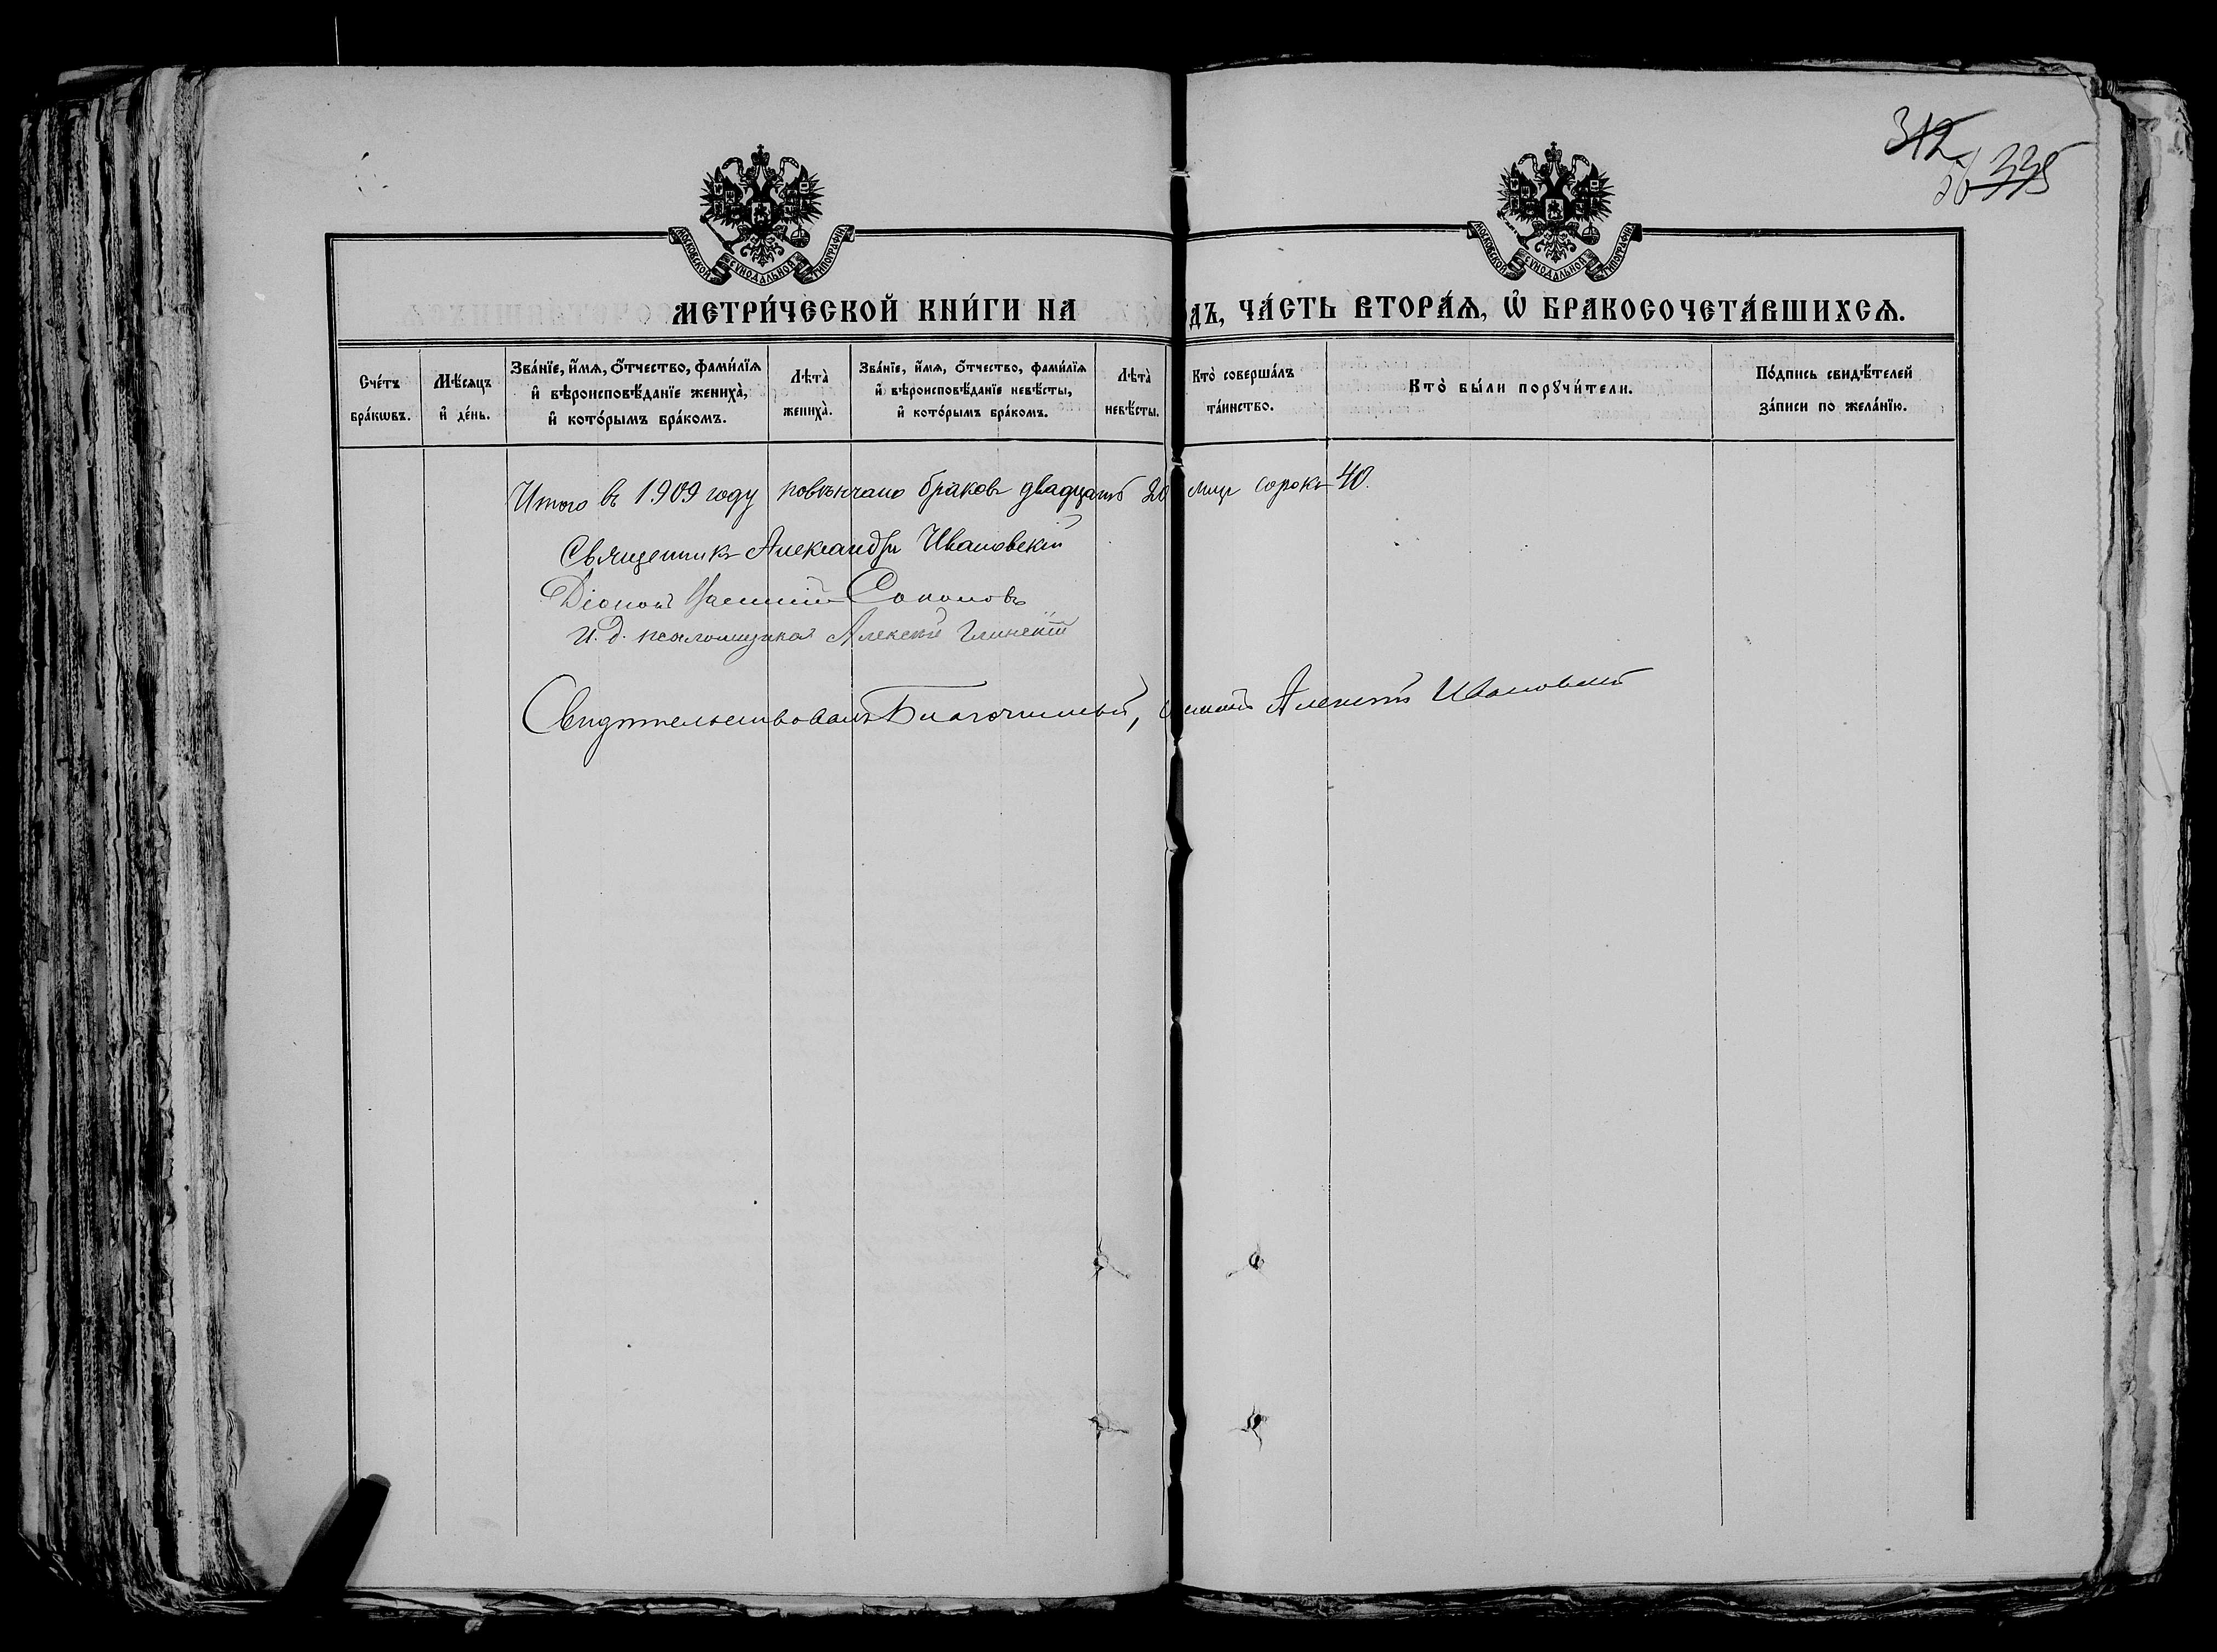 312
335
МОСКОВСКОЙ СѴНОДАЛЬНОЙ ТИПОГРАФІИ
МОСКОВСКОЙ СѴНОДАЛЬНОЙ ТИПОГРАФІИ
МЕТРИ́ЧЕСКОЙ КНИ́ГИ НА ОДЪ, ЧА́СТЬ ВТОРА́Ѧ, Ѡ҆ БРАКОСОЧЕТА́ВШИХСѦ.
Сче́тъ бра́кѡвъ.
Мѣ́сяцъ и҆ де́нь.
Зва́нїе, и҆́мѧ, ѻ҆́тчество, фами́лїѧ и҆ вѣроисповѣ́данїе жениха̀, и҆ кото́рымъ бра́комъ.
Лѣта̀ жениха̀.
Зва́нїе, и҆́мѧ, ѻ҆́тчество, фами́лїѧ и҆ вѣроисповѣ́данїе невѣ́сты, и҆ кото́рымъ бра́комъ.
Лѣта̀ невѣ́сты.
Кто̀ соверша́лъ та́инство.
Кто̀ бы́ли порꙋчи́тели.
По́дпись свидѣ́телей за́писи по жела́нїю.
Итого въ 1909 году повѣнчано браковъ двадцать 20 лицъ сорокъ 40.
Священникъ Александръ Ивановскій
Діаконъ Василій Соколовъ
И. д. псаломщика Алексѣй Глинскій
Свидѣтельствовалъ Благочинный, Алексѣй Ивановскій